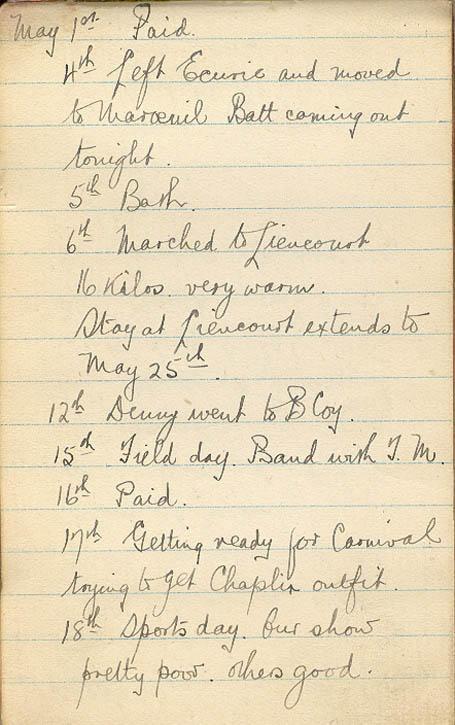 May 1st Paid.
4th Left Ecurie and moved
to Maroeuil Batt coming out
tonight.
5th Bath.
6th Marched to Liencourt
16 Kilos. very warm.
Stay at Liencourt extends to
May 25th.
12th Denny went to B Coy.
15th Field day. Band with T. M.
16th Paid.
17th Getting ready for Carnival
trying to get Chaplin outfit.
18th Sports day. Our show
pretty poor. others good.